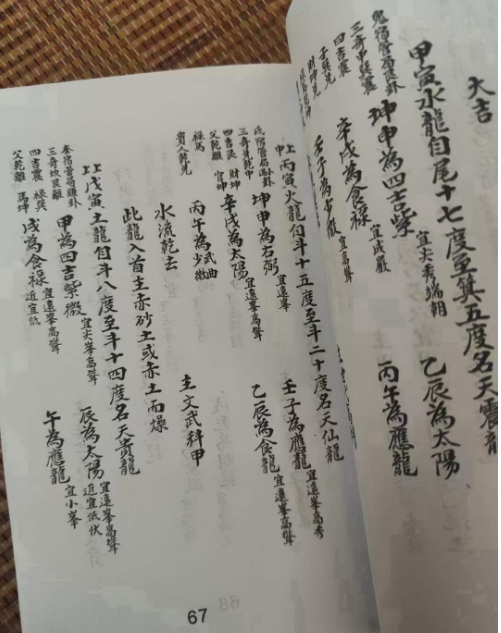 大吉
甲寅水龍自尾十七度至箕五度名天震龍
鬼宿管局艮卦
三奇甲巽離
四吉震
坤申為四吉紫
宜尖秀端朝
乙辰為太陽
辛戌為食祿
丙午為應龍
壬子為少微
上中
丙寅火龍自斗十五度至斗二十度名天仙龍
坤申為右弼
宜遠峯
壬子為應龍
宜遠峯高秀
三奇兌乾中
四吉艮 財坤
父乾離 官坤
辛戌為太陽
宜遠峯高聳
乙辰為食龍
宜遠峯高聳
祿馬
丙午為武曲
少微
賓人乾兌
水流乾去
主文武科甲
此龍入首主赤砂土或赤土而燥
比戊寅土龍自斗八度至斗十四度名天貴龍
甲為四吉紫微
宜尖峯高聳
辰為太陽
宜遠峯高聳
近宜低伏
三奇坎艮離
四吉震 祿巽
父乾離 馬坤
戌為食祿
宜遠峯高聳
近宜低
午為應龍
宜小峯
67